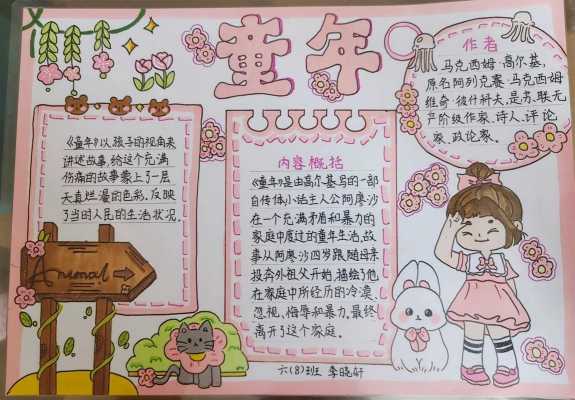 童年
作者
马克西姆·高尔基,
原名阿列克赛·马克西姆
维奇·彼什科夫,是苏联无
产阶级作家、诗人、评论
家、政论家。
《童年》以孩子的视角来
讲述故事,给这个充满
伤痛的故事蒙上了一层
天真烂漫的色彩,反映
了当时人民的生活状况。
内容概括
《童年》是由高尔基写的一部
自传体小说主人公阿廖沙
在一个充满矛盾和暴力的
家庭中度过的童年生活,故
事从阿廖沙四岁跟随母亲
投奔外祖父开始,描绘了他
在家庭中所经历的冷漠、
忽视、侮辱和暴力,最终
离开了这个家庭。
Animal
六(8)班 李晓妍